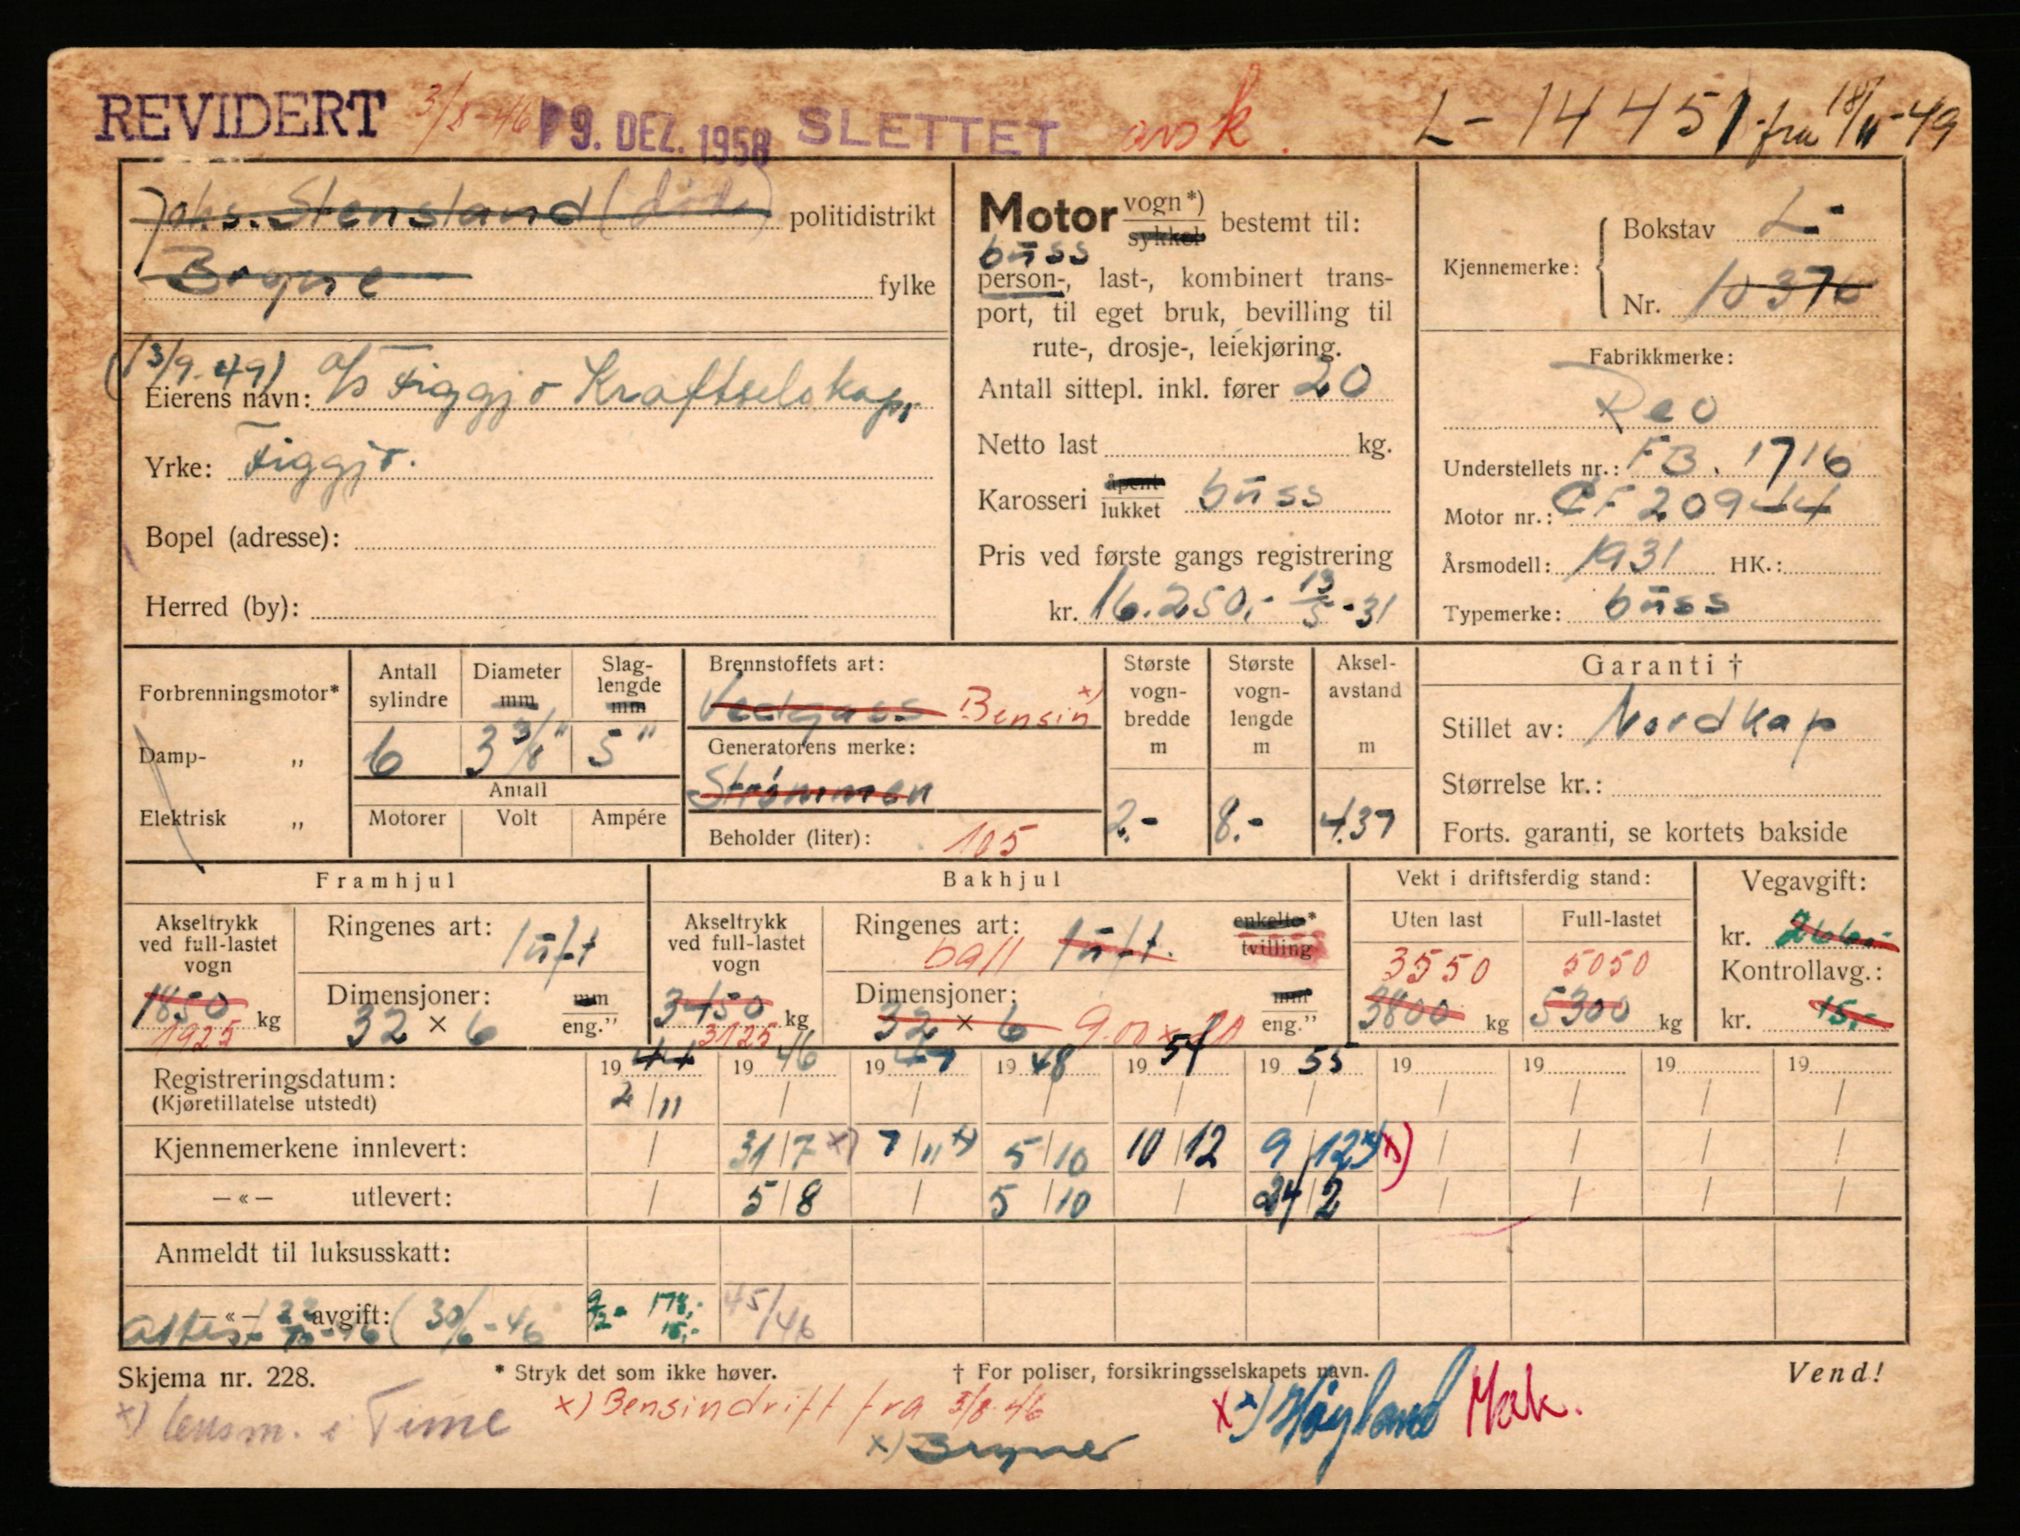 REVIDERT 3/8-46 9. DEZ. 1958 SLETTET avsk. L-14451 fra 18/11-49
Johs. Stensland (død) politidistrikt
Bryne fylke
(13/9-49)
Eierens navn: A/S Figgjo Kraftselskap,
Yrke: Figgjo.
Bopel (adresse):
Herred (by):
Motor vogn*) sykkel bestemt til:
büss
person-, last-, kombinert trans-
port, til eget bruk, bevilling til
rute-, drosje-, leiekjøring.
Antall sittepl. inkl. fører 20
Netto last kg.
Karosseri åpent lukket büss
Pris ved første gangs registrering
kr. 16.250,- 13/5-31
Kjennemerke: Bokstav L-
Nr. 10376
Fabrikkmerke:
Reo
Understellets nr.: FB. 1716
Motor nr.: CF 20944
Årsmodell: 1931 HK.:
Typemerke: büss
Forbrenningsmotor*
Damp- „
Elektrisk „
Antall sylindre Diameter mm Slag-lengde mm
6 3 3/8" 5"
Antall
Motorer Volt Ampére
Brennstoffets art:
Vedgass Bensin x)
Generatorens merke:
Strømmen
Beholder (liter): 105
Største vogn-bredde m 2.-
Største vogn-lengde m 8.-
Aksel-avstand m 4.37
Garanti †
Stillet av: Nordkap
Størrelse kr.:
Forts. garanti, se kortets bakside
Framhjul
Akseltrykk ved full-lastet vogn
1850 kg
1925
Ringenes art: lüft
Dimensjoner: mm eng."
32 × 6
Bakhjul
Akseltrykk ved full-lastet vogn
3450 kg
3125
Ringenes art: ball lüft. enkelte* tvilling
Dimensjoner: mm eng."
32 × 6 9.00 x 20
Vekt i driftsferdig stand:
Uten last Full-lastet
3550 5050
3800 kg 5300 kg
Vegavgift:
kr. 266,-
Kontrollavg.:
kr. 15,-
1944 1946 1947 1948 1954 1955 19 19 19 19
Registreringsdatum: 2/11 / / / / / / / / /
(Kjøretillatelse utstedt)
Kjennemerkene innlevert: / 31/7 x) 7/11 x) 5/10 10/12 9/12 x) x) / / / /
—«— utlevert: / 5/8 / 5/10 / 24/2 / / / /
Anmeldt til luksusskatt:
—«— avgift: 9/2- 178,- 15,- 45/46
Attest 22/10-46 (30/6-46
Skjema nr. 228. * Stryk det som ikke høver. † For poliser, forsikringsselskapets navn. Vend!
x) lensm. i Time x) Bensindrift fra 3/8-46 x) Bryne x x) Høyland Mak.